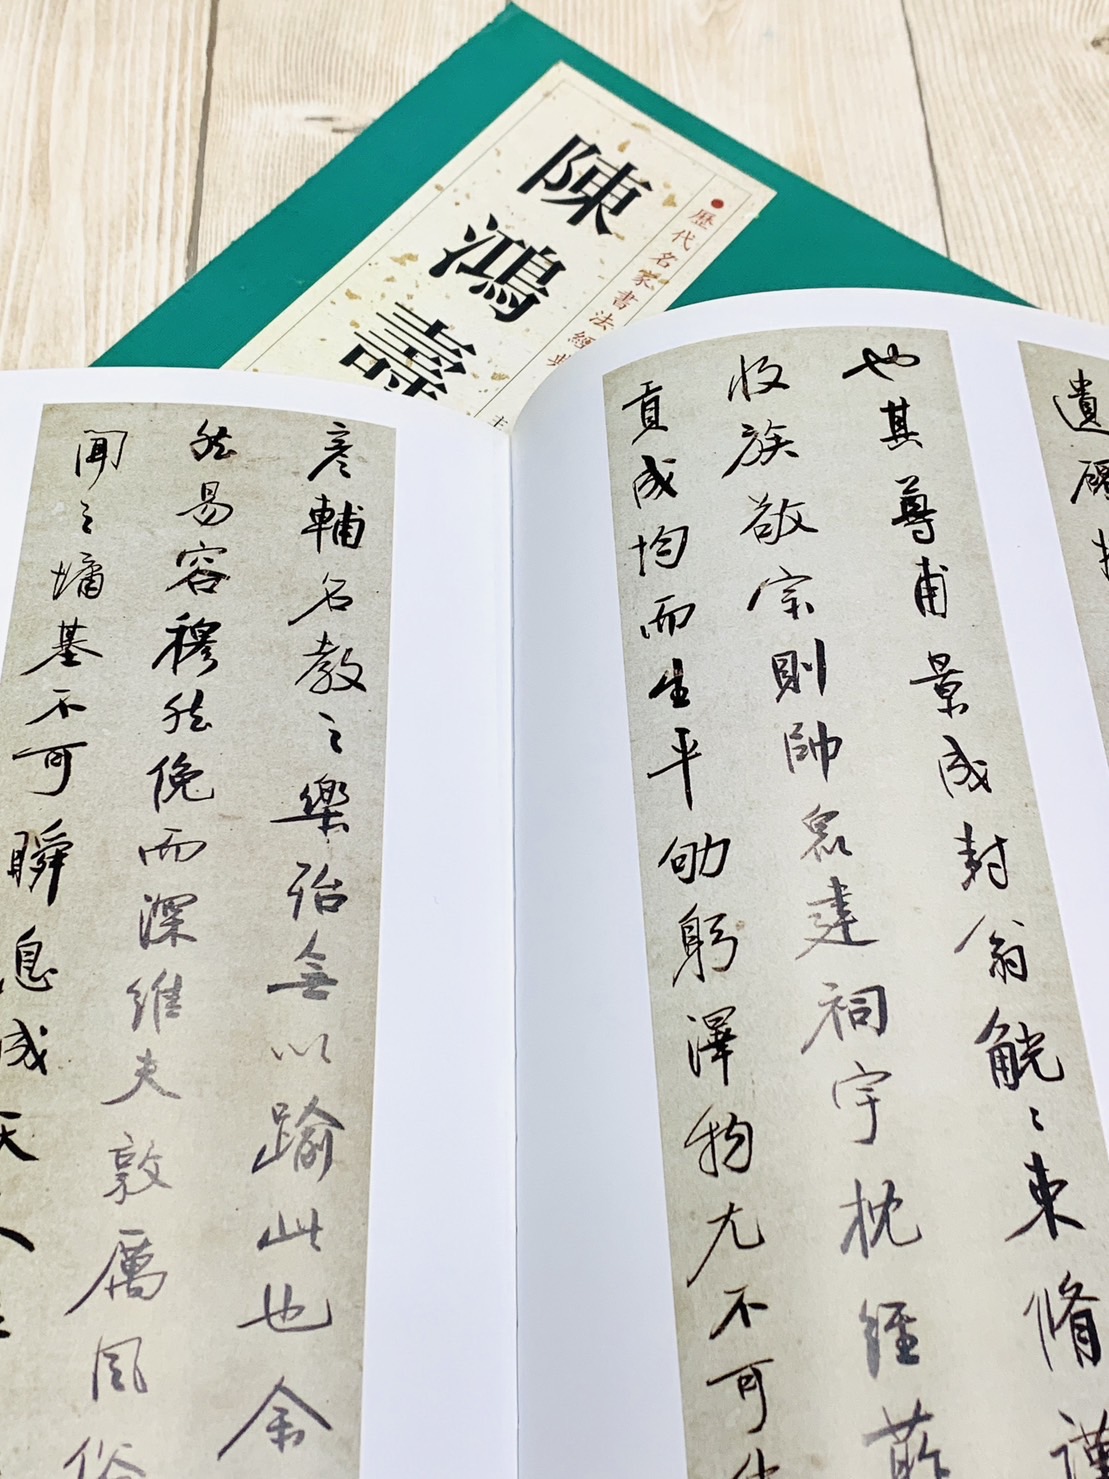 陳鴻壽
歷代名家書法經典
遺
也其尊甫景成封翁觥〻束脩謹
收族敬宗則帥眾建祠宇枕經葄
貢成均而生平劬躬澤物尤不可
彥輔名教之樂殆無以踰此也余
然易容穆然俛而深維夫敦厲風俗
聞之墉基不可瞬息成